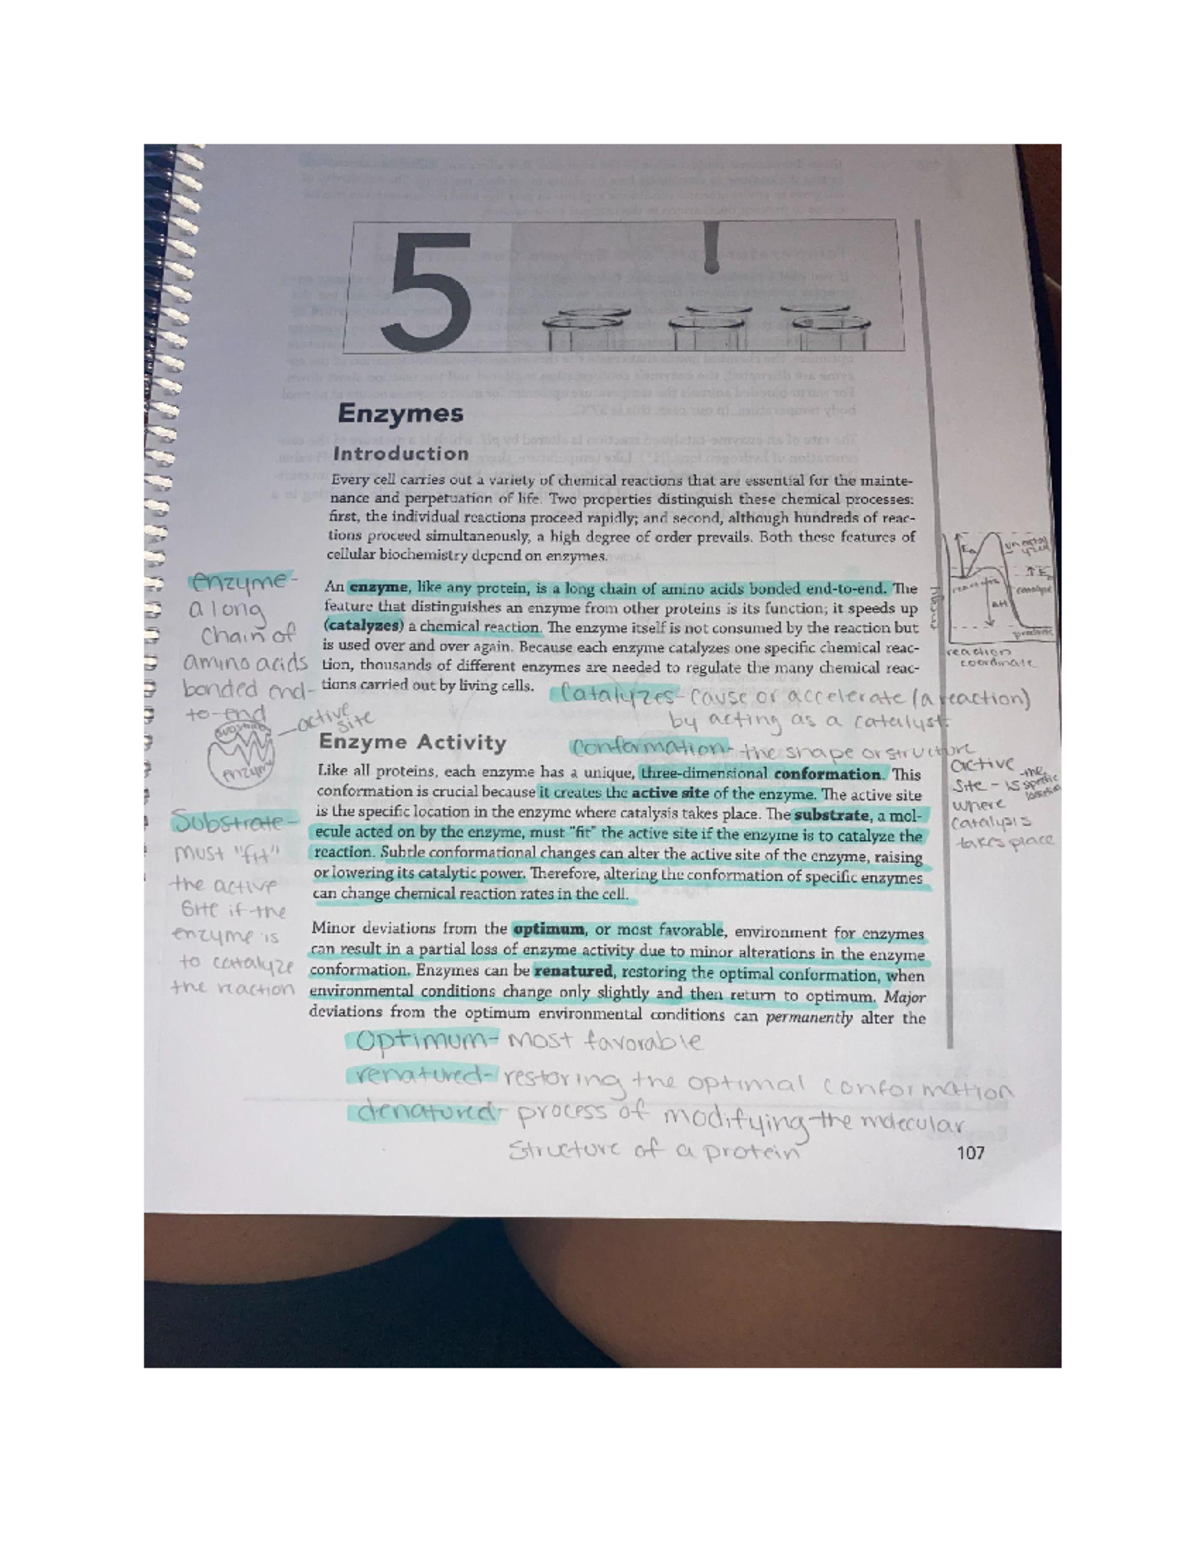 5
Enzymes
Introduction
Every cell carries out a variety of chemical reactions that are essential for the mainte-
nance and perpetuation of life. Two properties distinguish these chemical processes:
first, the individual reactions proceed rapidly; and second, although hundreds of reac-
tions proceed simultaneously, a high degree of order prevails. Both these features of
cellular biochemistry depend on enzymes.
An enzyme, like any protein, is a long chain of amino acids bonded end-to-end. The
feature that distinguishes an enzyme from other proteins is its function; it speeds up
(catalyzes) a chemical reaction. The enzyme itself is not consumed by the reaction but
is used over and over again. Because each enzyme catalyzes one specific chemical reac-
tion, thousands of different enzymes are needed to regulate the many chemical reac-
tions carried out by living cells.
enzyme-
a long
chain of
amino acids
bonded end-
to-end
Catalyzes- cause or accelerate (a reaction)
by acting as a catalyst
energy
Ea
reactants
ΔH
products
reaction
coordinate
substrate
enzyme
active
site
conformation- the shape or structure
Enzyme Activity
Like all proteins, each enzyme has a unique, three-dimensional conformation. This
conformation is crucial because it creates the active site of the enzyme. The active site
is the specific location in the enzyme where catalysis takes place. The substrate, a mol-
ecule acted on by the enzyme, must "fit" the active site if the enzyme is to catalyze the
reaction. Subtle conformational changes can alter the active site of the enzyme, raising
or lowering its catalytic power. Therefore, altering the conformation of specific enzymes
can change chemical reaction rates in the cell.
active
site - is the specific location
where
catalysis
takes place
Substrate-
must "fit"
the active
site if the
enzyme is
to catalyze
the reaction
Minor deviations from the optimum, or most favorable, environment for enzymes
can result in a partial loss of enzyme activity due to minor alterations in the enzyme
conformation. Enzymes can be renatured, restoring the optimal conformation, when
environmental conditions change only slightly and then return to optimum. Major
deviations from the optimum environmental conditions can permanently alter the
Optimum- most favorable
renatured- restoring the optimal conformation
denatured- process of modifying the molecular
structure of a protein
107